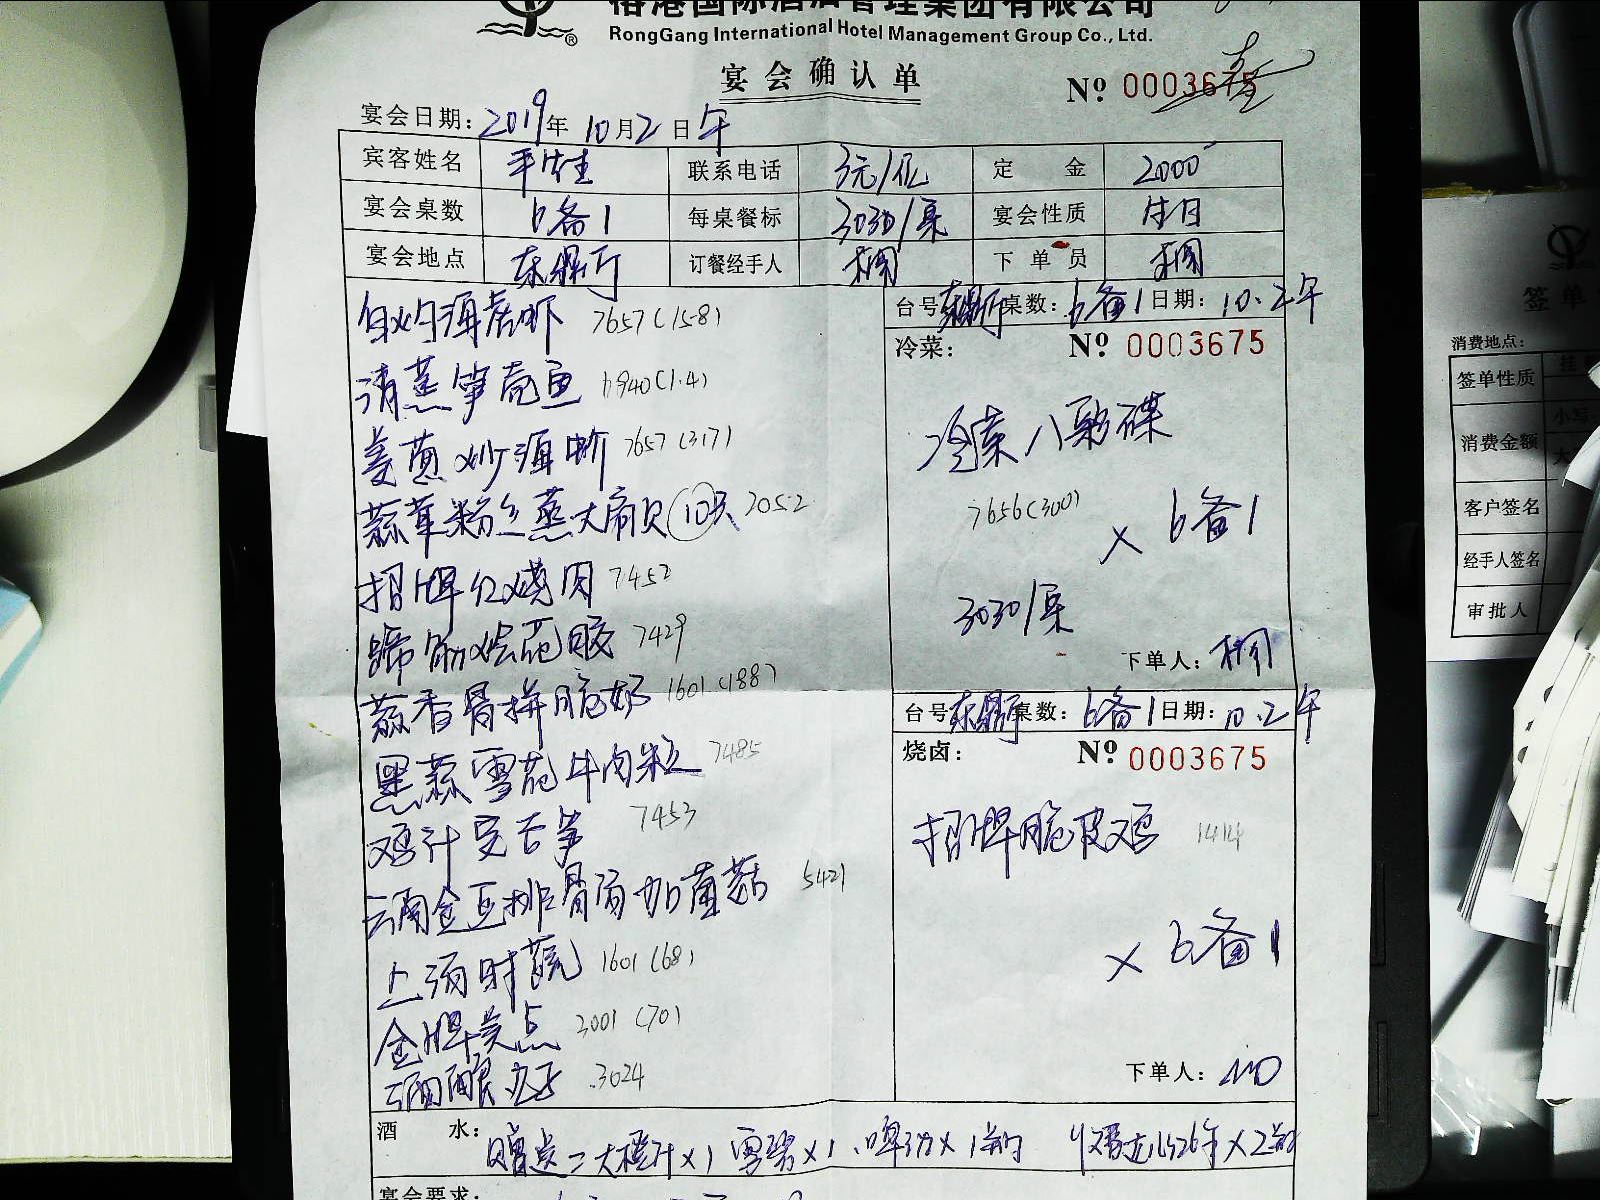 RongGang International Hotel Management Group Co., Ltd.
宴会确认单
№ 0003675
宴会日期: 2019年 10月2日午
宾客姓名 联系电话 3元/位 定金 2000
宴会桌数 6备1 每桌餐标 3030/桌 宴会性质 生日
宴会地点 东鼎厅 订餐经手人 下单员
白灼海老虾 7657(158)
清蒸笋壳鱼
姜葱炒海中虾 7657(317)
蒜茸粉丝蒸大扇贝(10只) 2052
招牌红烧肉 7452
蹄筋烩花胶 7429
蒜香骨拼脆奶 1601(188)
黑蒜雪花牛肉粒 7485
鸡汁笋 7453
排骨汤加菌菇 5421
上汤时蔬 1601(68)
金牌美点 3001(70)
酒酿丸子 3024
台号: 东鼎厅 桌数: 6备1 日期: 10.2午
冷菜: № 0003675
冷菜八彩碟
7656(300)
× 6备1
3030/桌
下单人:
台号: 东鼎厅 桌数: 6备1 日期: 10.2午
烧卤: № 0003675
招牌脆皮鸡 1414
× 6备1
下单人:
酒水: 赠送: 大橙汁×1 雪碧×1 啤酒×1箱
宴会要求:
签单
消费地点:
签单性质
消费金额
客户签名
经手人签名
审批人